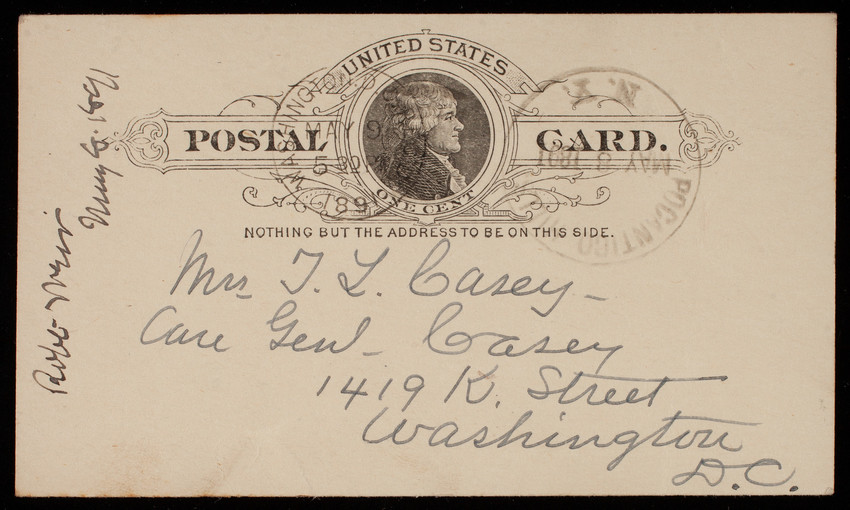 UNITED STATES
POSTAL CARD.
ONE CENT
NOTHING BUT THE ADDRESS TO BE ON THIS SIDE.
WASHINGTON, D.C.
MAY 9
5-30P
189
POCANTICO
N.Y.
MAY 8 1891
Mrs T. L. Casey-
Care Genl- Casey
1419 K. Street
Washington
D.C.
Robt Weir
May 8. 1891